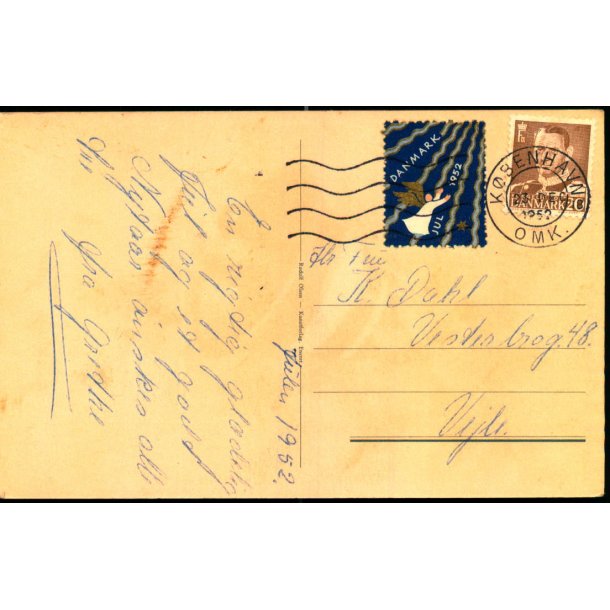 En rigtig glædelig
Jul og et godt
Nytaar ønskes alle
fra Grethe
Julen 1952.
Rudolf Olsen — Kunstforlag, Eneret
DANMARK
1952
JUL
DANMARK 20
KØBENHAVN
1952
OMK.
Fru
K. Dahl
Vesterbrog 48.
Vejle.